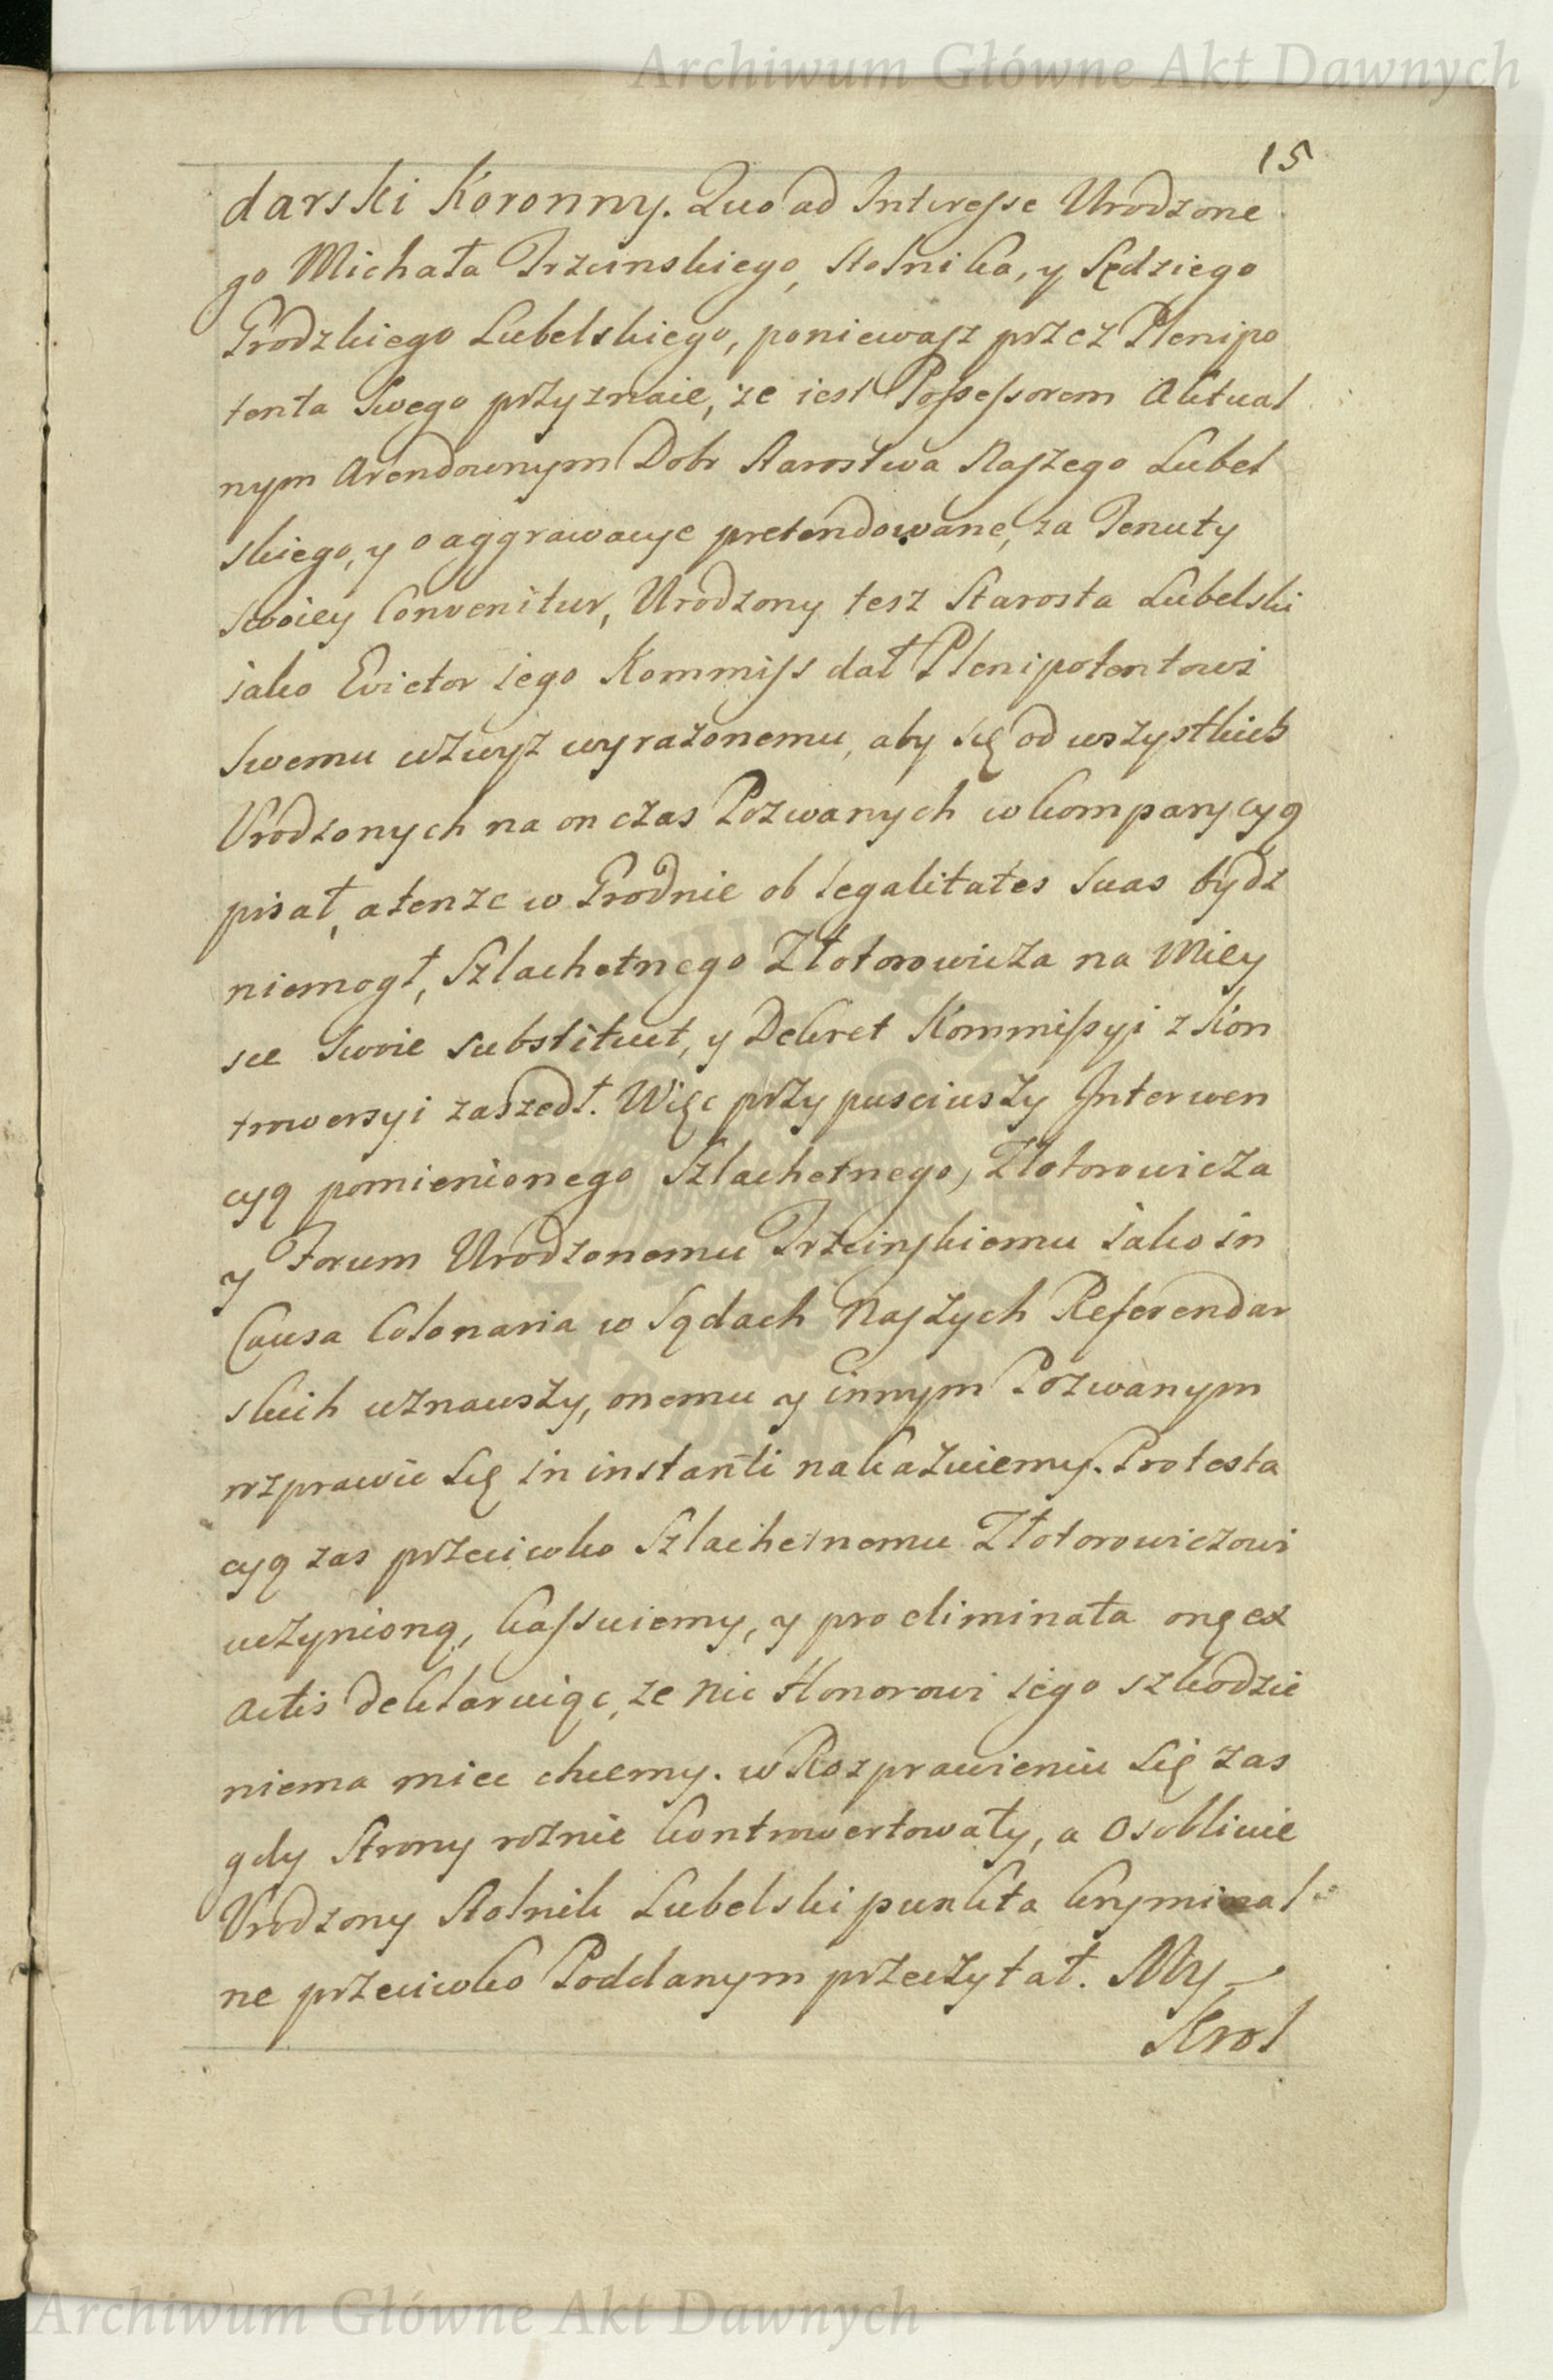 Archiwum Główne Akt Dawnych
15
darski Koronny. Quo ad Interesse Urodzone
go Michała Trzcinskiego, Stolnika, y Sędziego
Grodzkiego Lubelskiego, poniewasz przez Plenipo
tenta Swego przyznaie, że iest Possessorem Aktual
nym Arendownym Dobr Starostwa Naszego Lubel
skiego, y o aggrawacye pretendowane, za Tenuty
swoiey Convenitur, Urodzony tesz Starosta Lubelski
iako Evictor iego Kommiss dał Plenipotentowi
Swemu wzwysz wyrażonemu, aby się od wszystkich
Urodzonych na on czas Pozwanych w komparycyą
pisał, a tenze w Grodnie ob legalitates suas bydz
niemogł, Szlachetnego Złotorowicza na Miey
sce Swoie substituit, y Dekret Kommissyi z Kon
trowersyi zaszedł. Więc przypusciwszy Interwen
cyą pomienionego Szlachetnego, Złotorowicza
y Forum Urodzonemu Trzcinskiemu iako in
Causa Colonaria w Sądach Naszych Referendar
skich uznawszy, onemu y innym Pozwanym
rozprawic się in instanti nakazuiemy. Protesta
cyą zas przeciwko Szlachetnemu Złotorowiczowi
uczynioną, kassuiemy, y pro eliminata onę ex
Actis deklaruiąc, ze nic Honorowi iego szkodzic
niema miec chcemy. w Rozprawieniu się zas
gdy Strony roznie kontrowertowały, a osobliwie
Urodzony Stolnik Lubelski punkta kryminal
ne przeciwko Poddanym przeczytał. My
Krol
Archiwum Główne Akt Dawnych